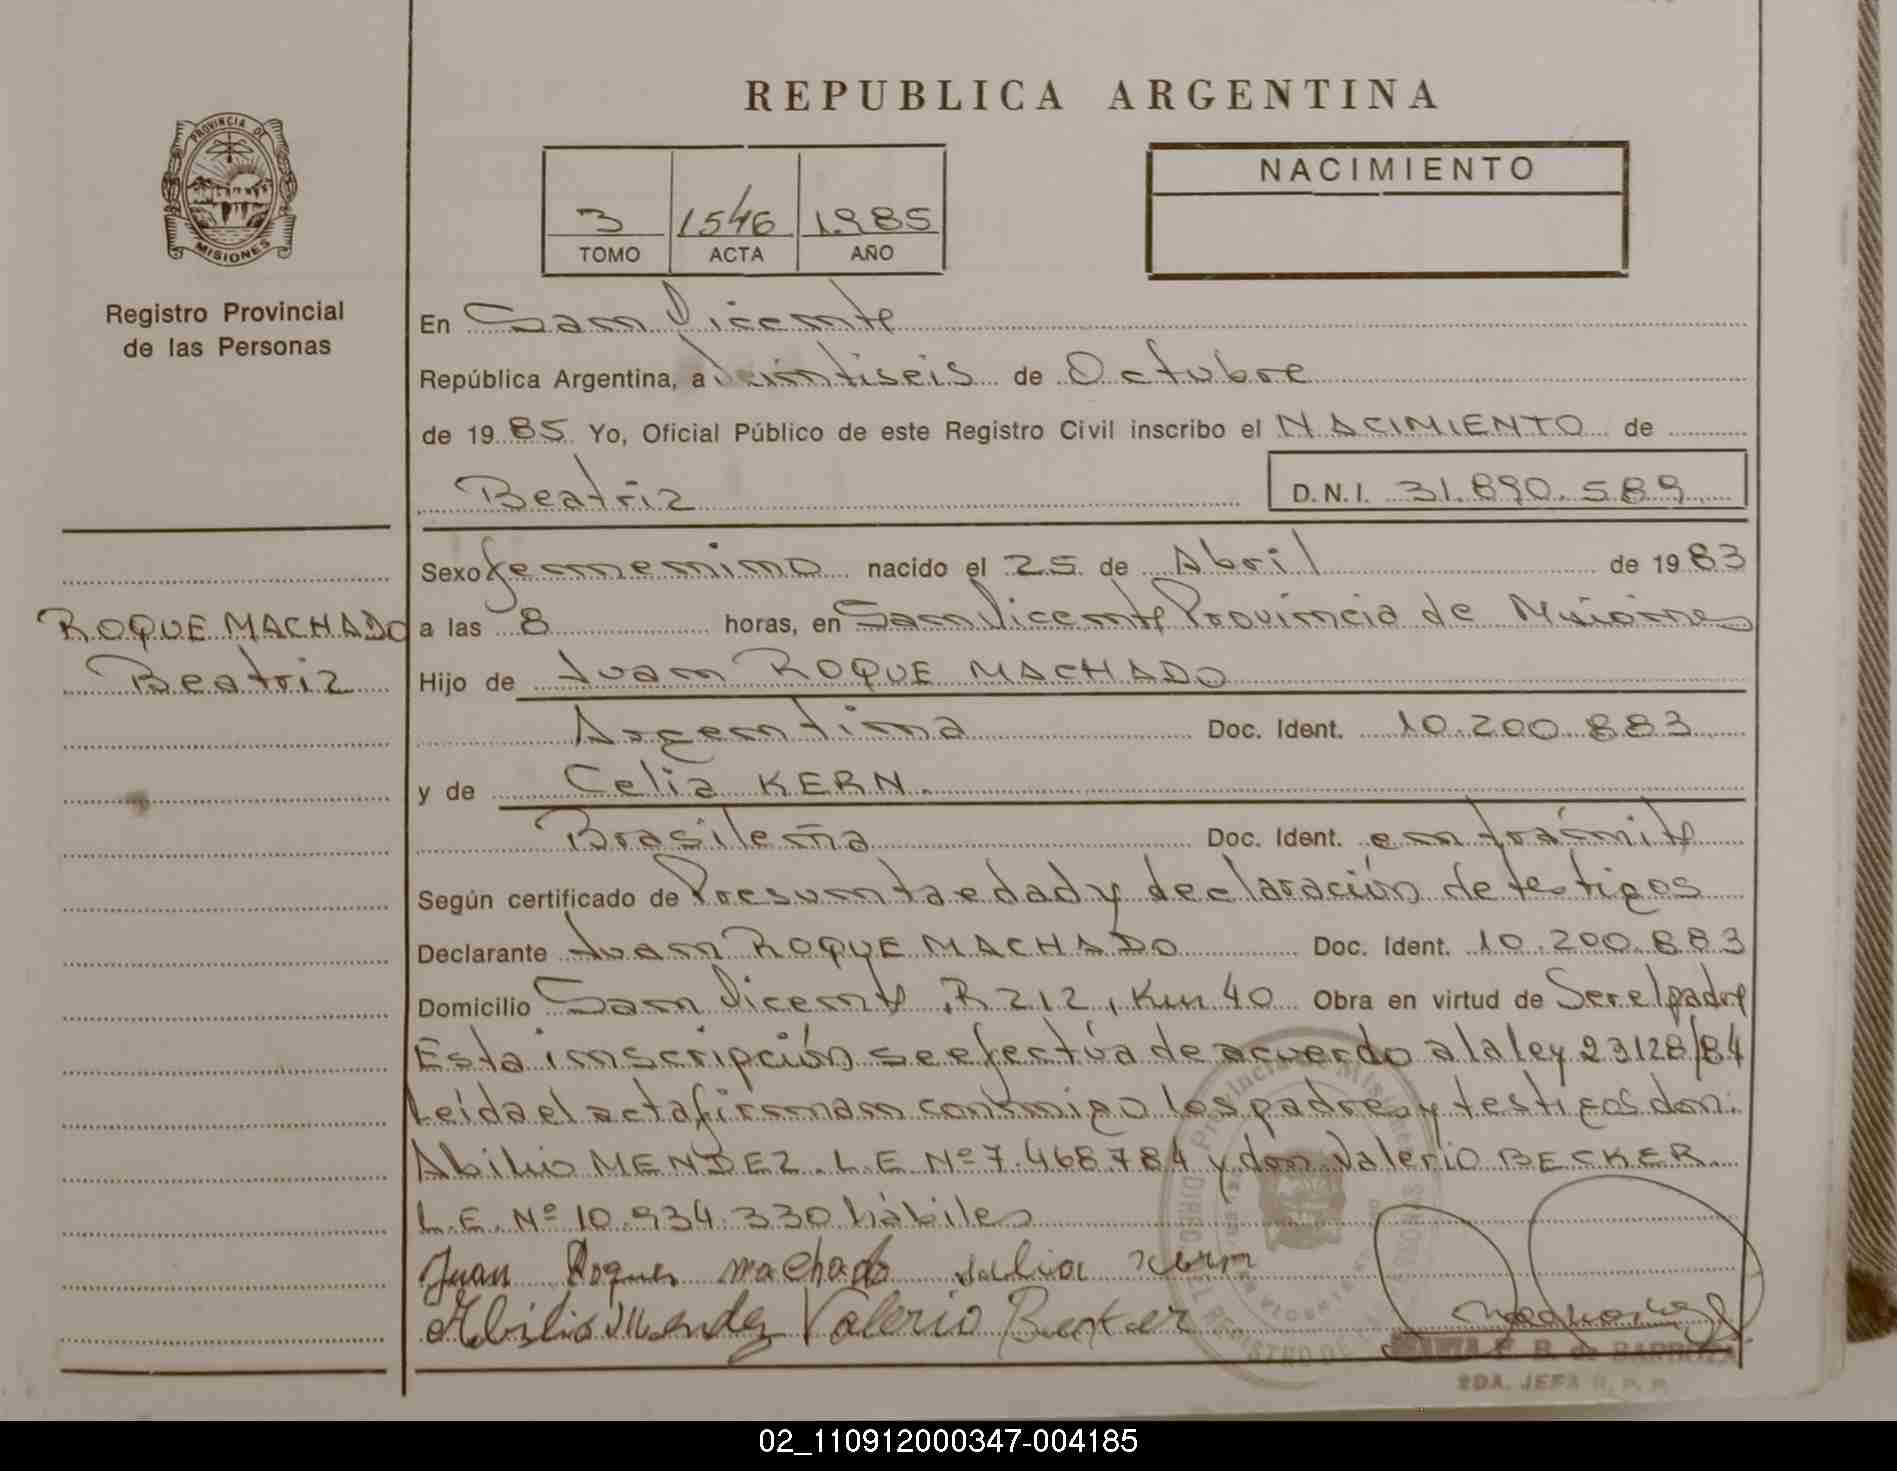 PROVINCIA DE
MISIONES
Registro Provincial
de las Personas
ROQUE MACHADO
Beatriz
REPUBLICA ARGENTINA
3 1546 1.985
TOMO ACTA AÑO
NACIMIENTO
En San Vicente
República Argentina, a Veintiseis de Octubre
de 19 85 Yo, Oficial Público de este Registro Civil inscribo el NACIMIENTO de
Beatriz D.N.I. 31.890.589
Sexo femenino nacido el 25 de Abril de 19 83
a las 8 horas, en San Vicente Provincia de Misiones
Hijo de Juan ROQUE MACHADO
Argentina Doc. Ident. 10.200.883
y de Celia KERN.
Brasileña Doc. Ident. en trámite
Según certificado de Presunta edad y declaración de testigos
Declarante Juan ROQUE MACHADO Doc. Ident. 10.200.883
Domicilio San Vicente, R 212, Km 40 Obra en virtud de Ser el padre
Esta inscripción se efectúa de acuerdo a la ley 23128/84
Leída el acta firman conmigo los padres y testigos don:
Abilio MENDEZ. L.E. Nº 7.468.784 y don Valerio BECKER
L.E. Nº 10.934.330 hábiles
Juan Roque machado selia kern
Abilio Mendez Valerio Becker
Provincia de Misiones
B. de BARBOZA
2DA. JEFA R. P. P.
02_110912000347-004185